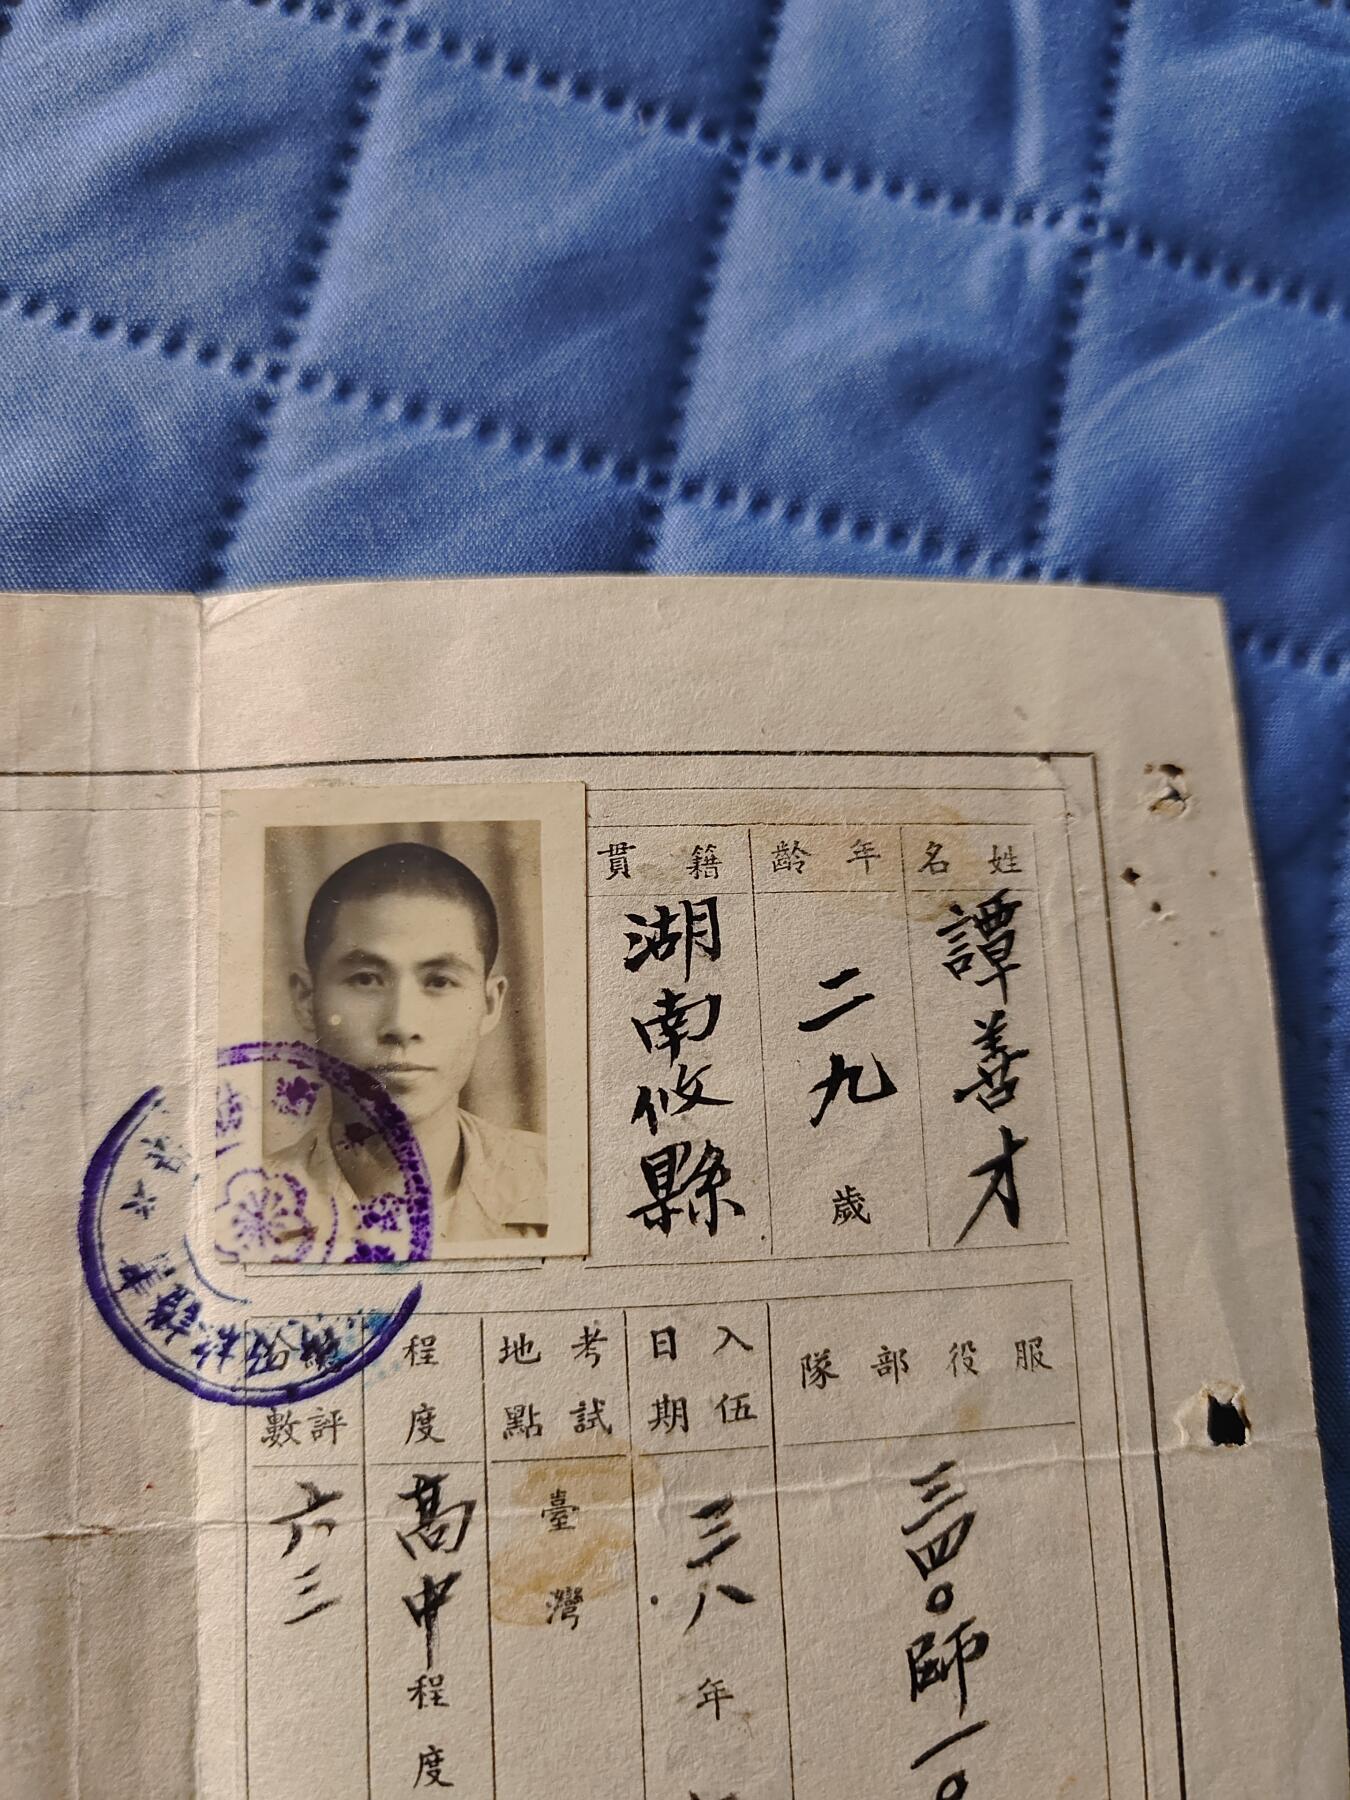 姓名
譚善才
年齡
二九歲
籍貫
湖南攸縣
服役部隊
三四〇師一〇
入伍日期
三八年
考試地點
臺灣
程度
高中程度
評
數
六三